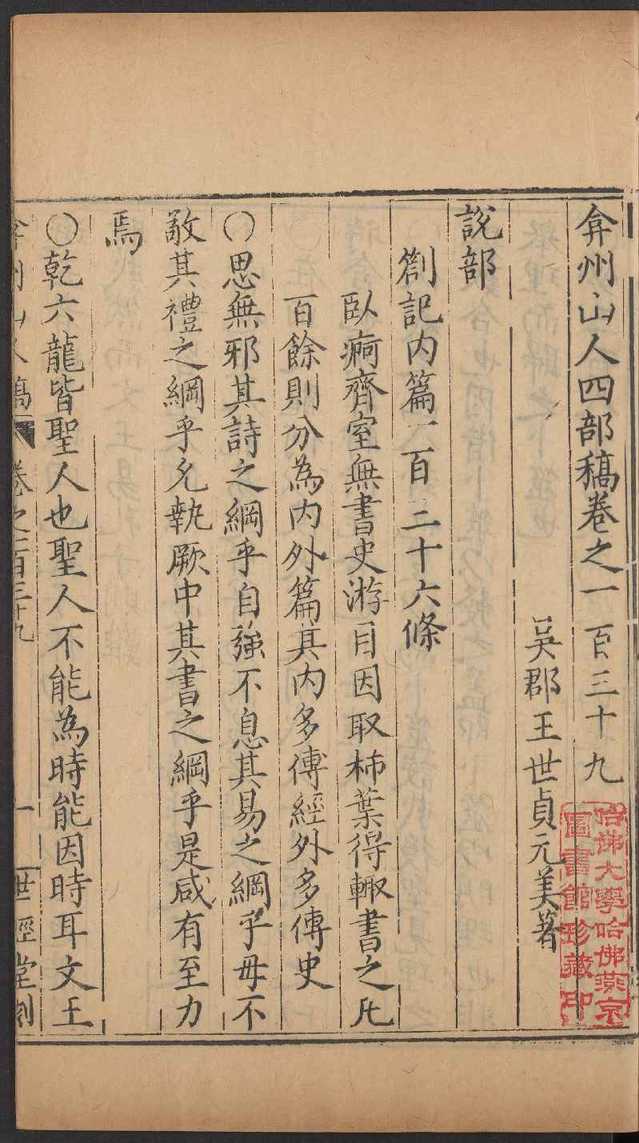 弇州山人四部稿卷之一百三十九
吳郡王世貞元美著
說部
劄記内篇一百三十六條
臥痾齊室無書史游目因取柿葉得輙書之凡
百餘則分為内外篇其内多傅經外多傅史
〇思無邪其詩之綱乎自強不息其易之綱乎毋不
敬其禮之綱乎允執厥中其書之綱乎是咸有至力
焉
〇乾六龍皆聖人也聖人不能為時能因時耳文王
弇州山人稿 卷之一百三十九 一 世經堂刻
哈佛大學哈佛燕京
圖書館珍藏印